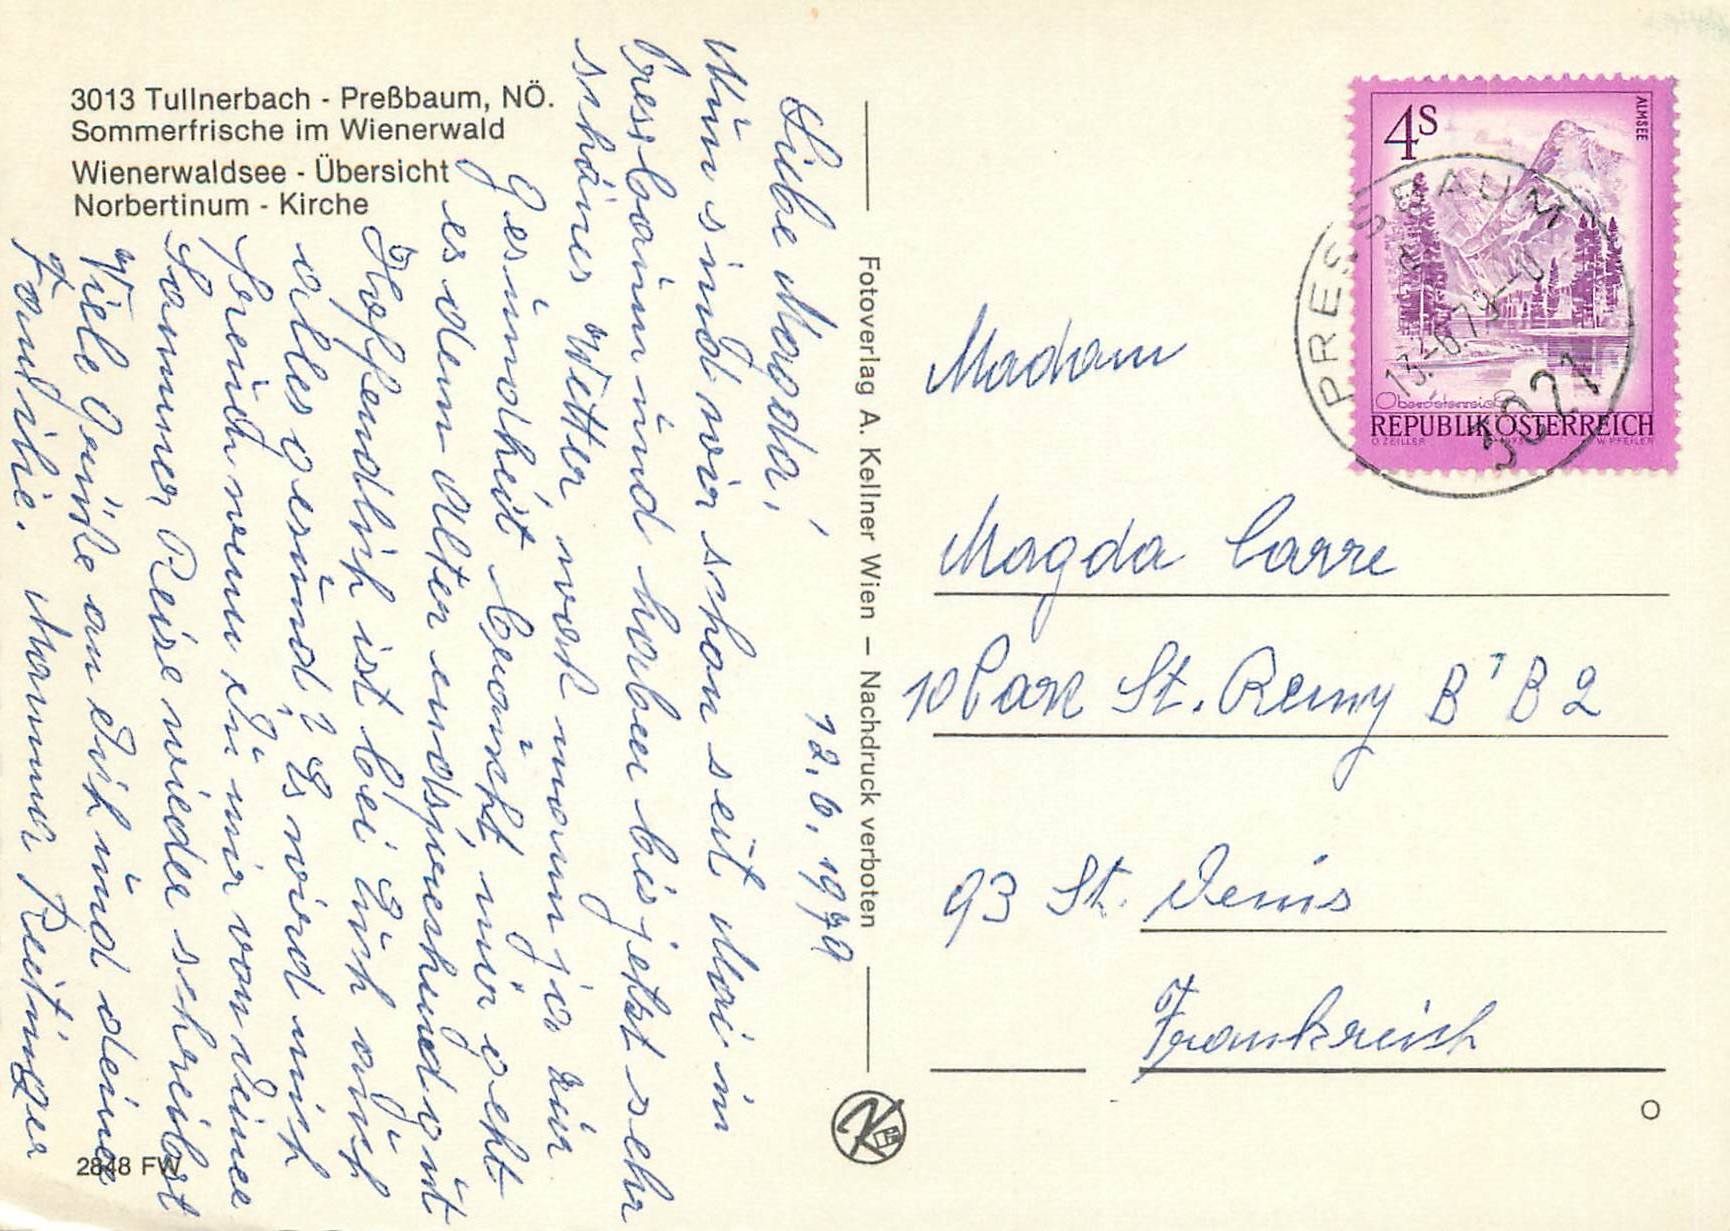 3013 Tullnerbach - Preßbaum, NÖ.
Sommerfrische im Wienerwald
Wienerwaldsee - Übersicht
Norbertinum - Kirche
12. 6. 1979
Liebe Magda!
Nun sind wir schon seit Mai in
Pressbaum und haben bis jetzt sehr
schönes Wetter, was man ja zur
Gesundheit braucht, mir geht
es dem Alter entsprechend gut
Hoffendlich ist bei Euch auch
alles gesund? Es wird mich
freuen wenn Du mir von Deiner
Sommer Reise wieder schreibst
Viele Grüße an Dich und deine
Familie. Mamma
2848 FW
Fotoverlag A. Kellner Wien – Nachdruck verboten
K
4S
ALMSEE
Oberösterreich
REPUBLIK ÖSTERREICH
O. ZEILLER 1973 W. PFEILER
PRESSBAUM
13.-6.79
3021
Madam
Magda Carre
10 Parc St. Remy B'B2
93 St. Denis
Frankreich
O